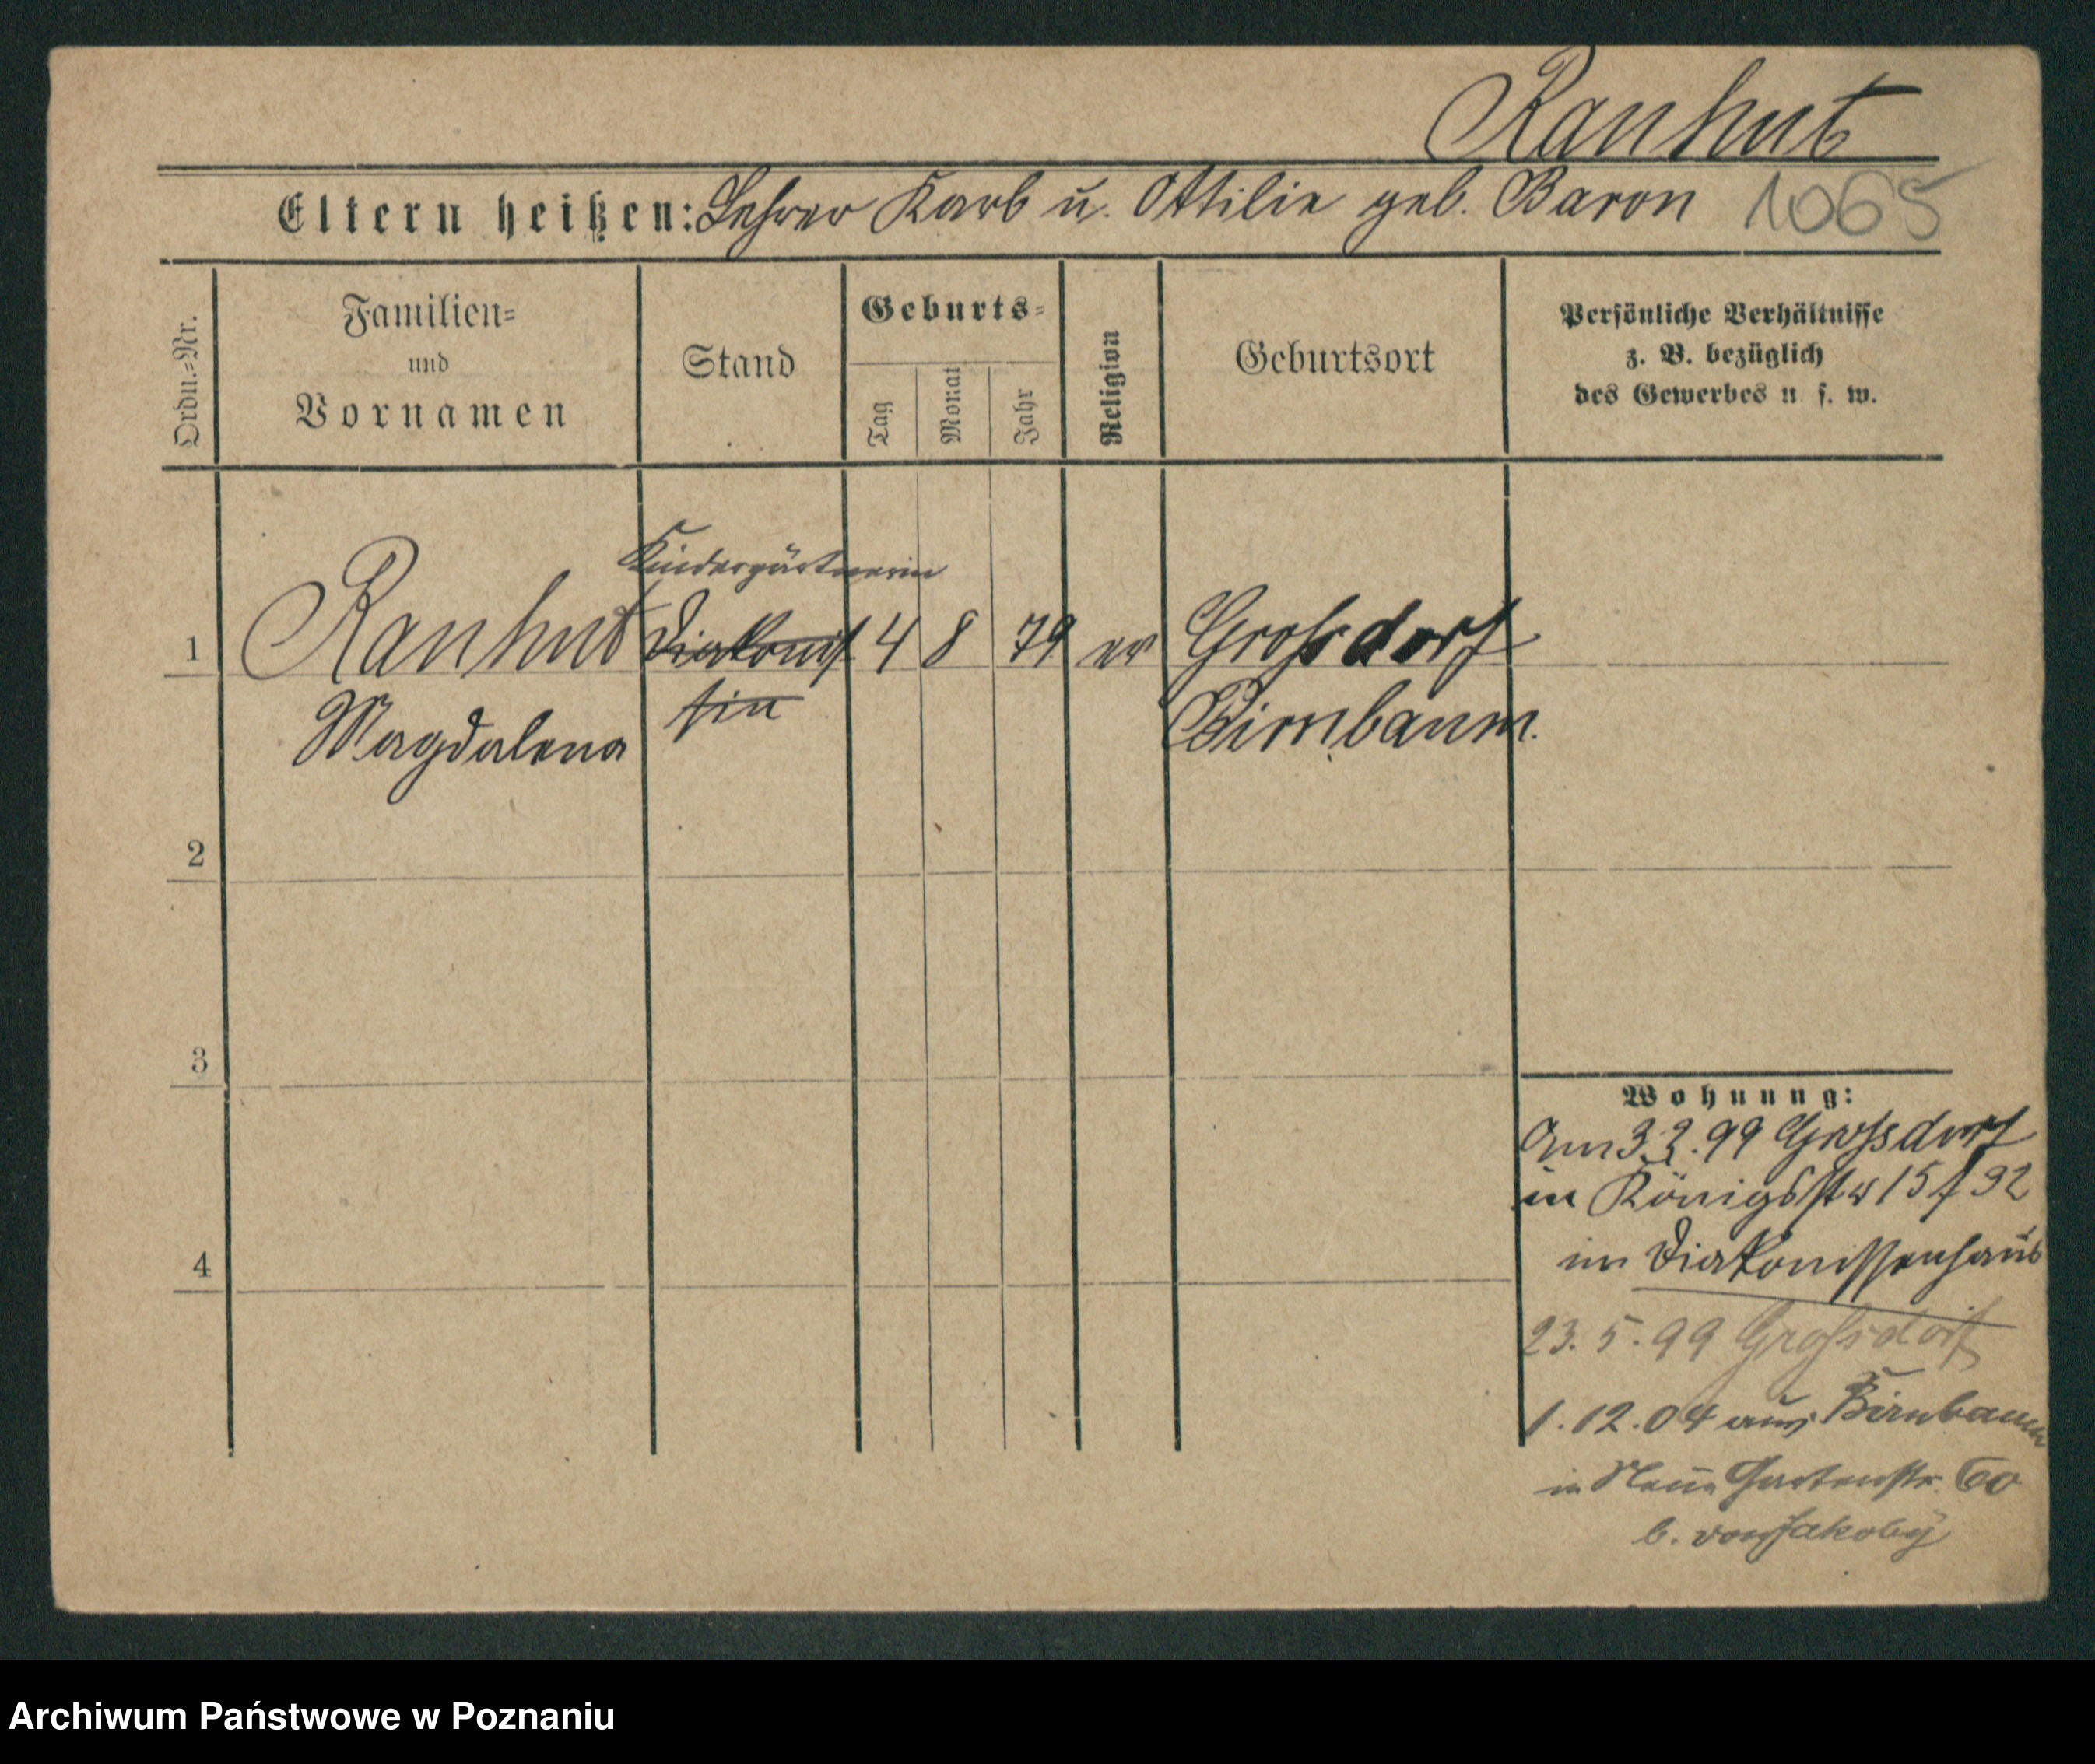 Rauhut
Eltern heißen: Lehrer Karl u. Ottilie geb. Baron 1065
Ordn.=Nr.
Familien=
und
Vornamen
Stand
Geburts=
Tag
Monat
Jahr
Religion
Geburtsort
Persönliche Verhältnisse
z. B. bezüglich
des Gewerbes u s. w.
Kindergärtnerin
1 Rauhut Diakonis 4 8 79 ev Grossdorf
Magdalena sin Birnbaum.
2
3
4
Wohnung:
Am 3.2.99 Grossdorf
in Königsstr 15 f 92
im Diakonissenhaus
23.5.99 Grossdorf
1.12.04 aus Birnbaum
in Neue Gartenstr. 60
b. von Jakoby
Archiwum Państwowe w Poznaniu